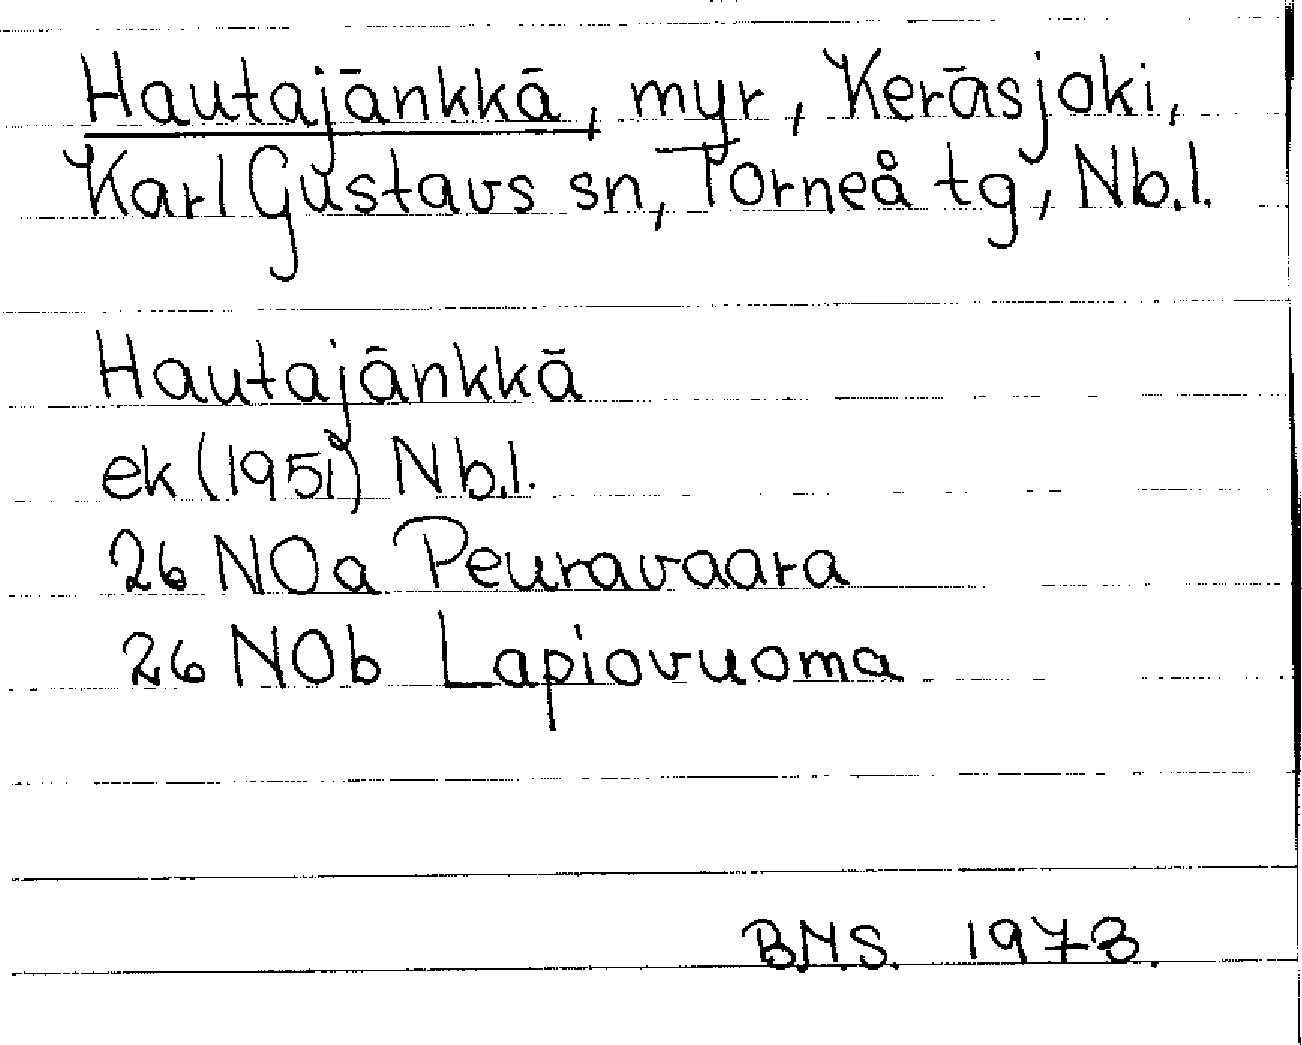 Hautajänkkä, myr, Keräsjoki,
Karl Gustavs sn, Torneå tg, Nb.l.
Hautajänkkä
ek (1951) Nb.l.
26 NOa Peuravaara
26 NOb Lapiovuoma
B.N.S. 1973.